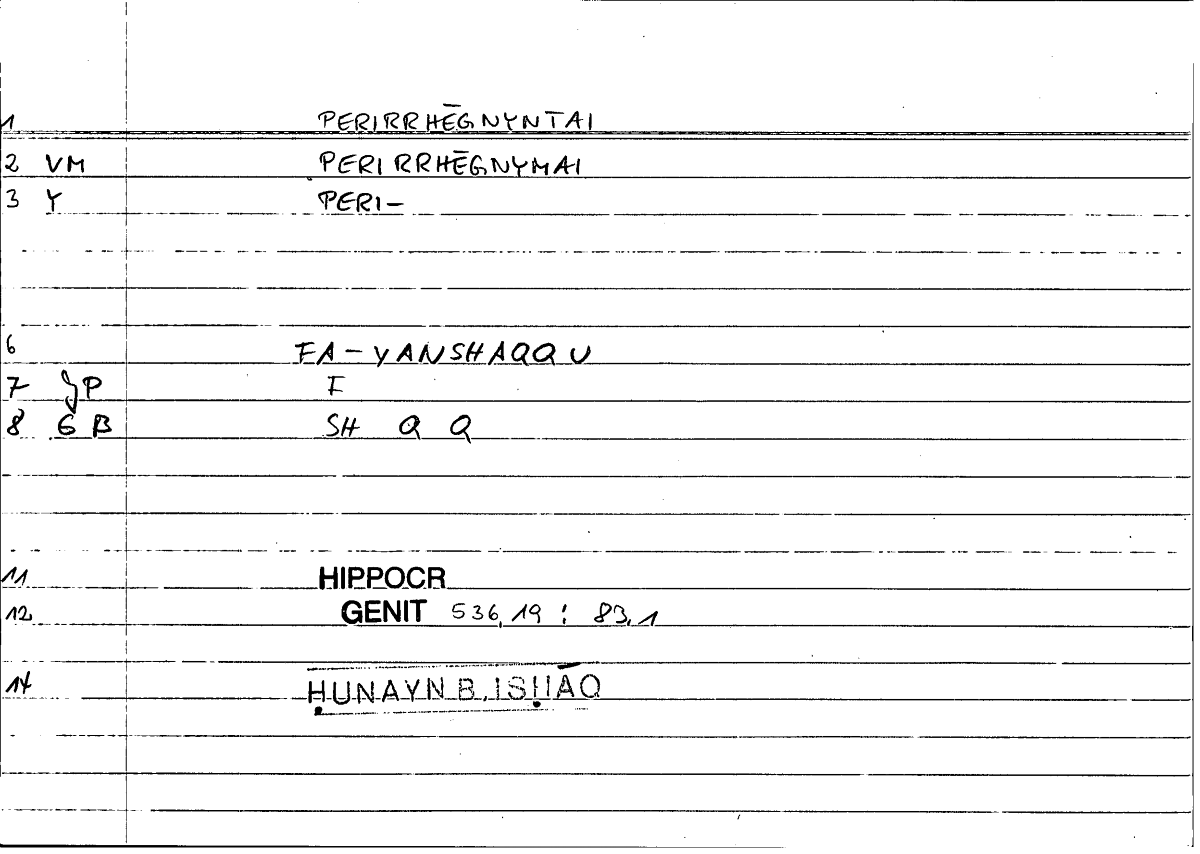 1 PERIRRHĒGNYNTAI
2 VM PERIRRHĒGNYMAI
3 Y PERI-
6 FA-YANSHAQQU
7 JP F
8 6 B SH Q Q
11 HIPPOCR
12 GENIT 536,19 : 83,1
14 ḤUNAYN B. ISḤĀQ